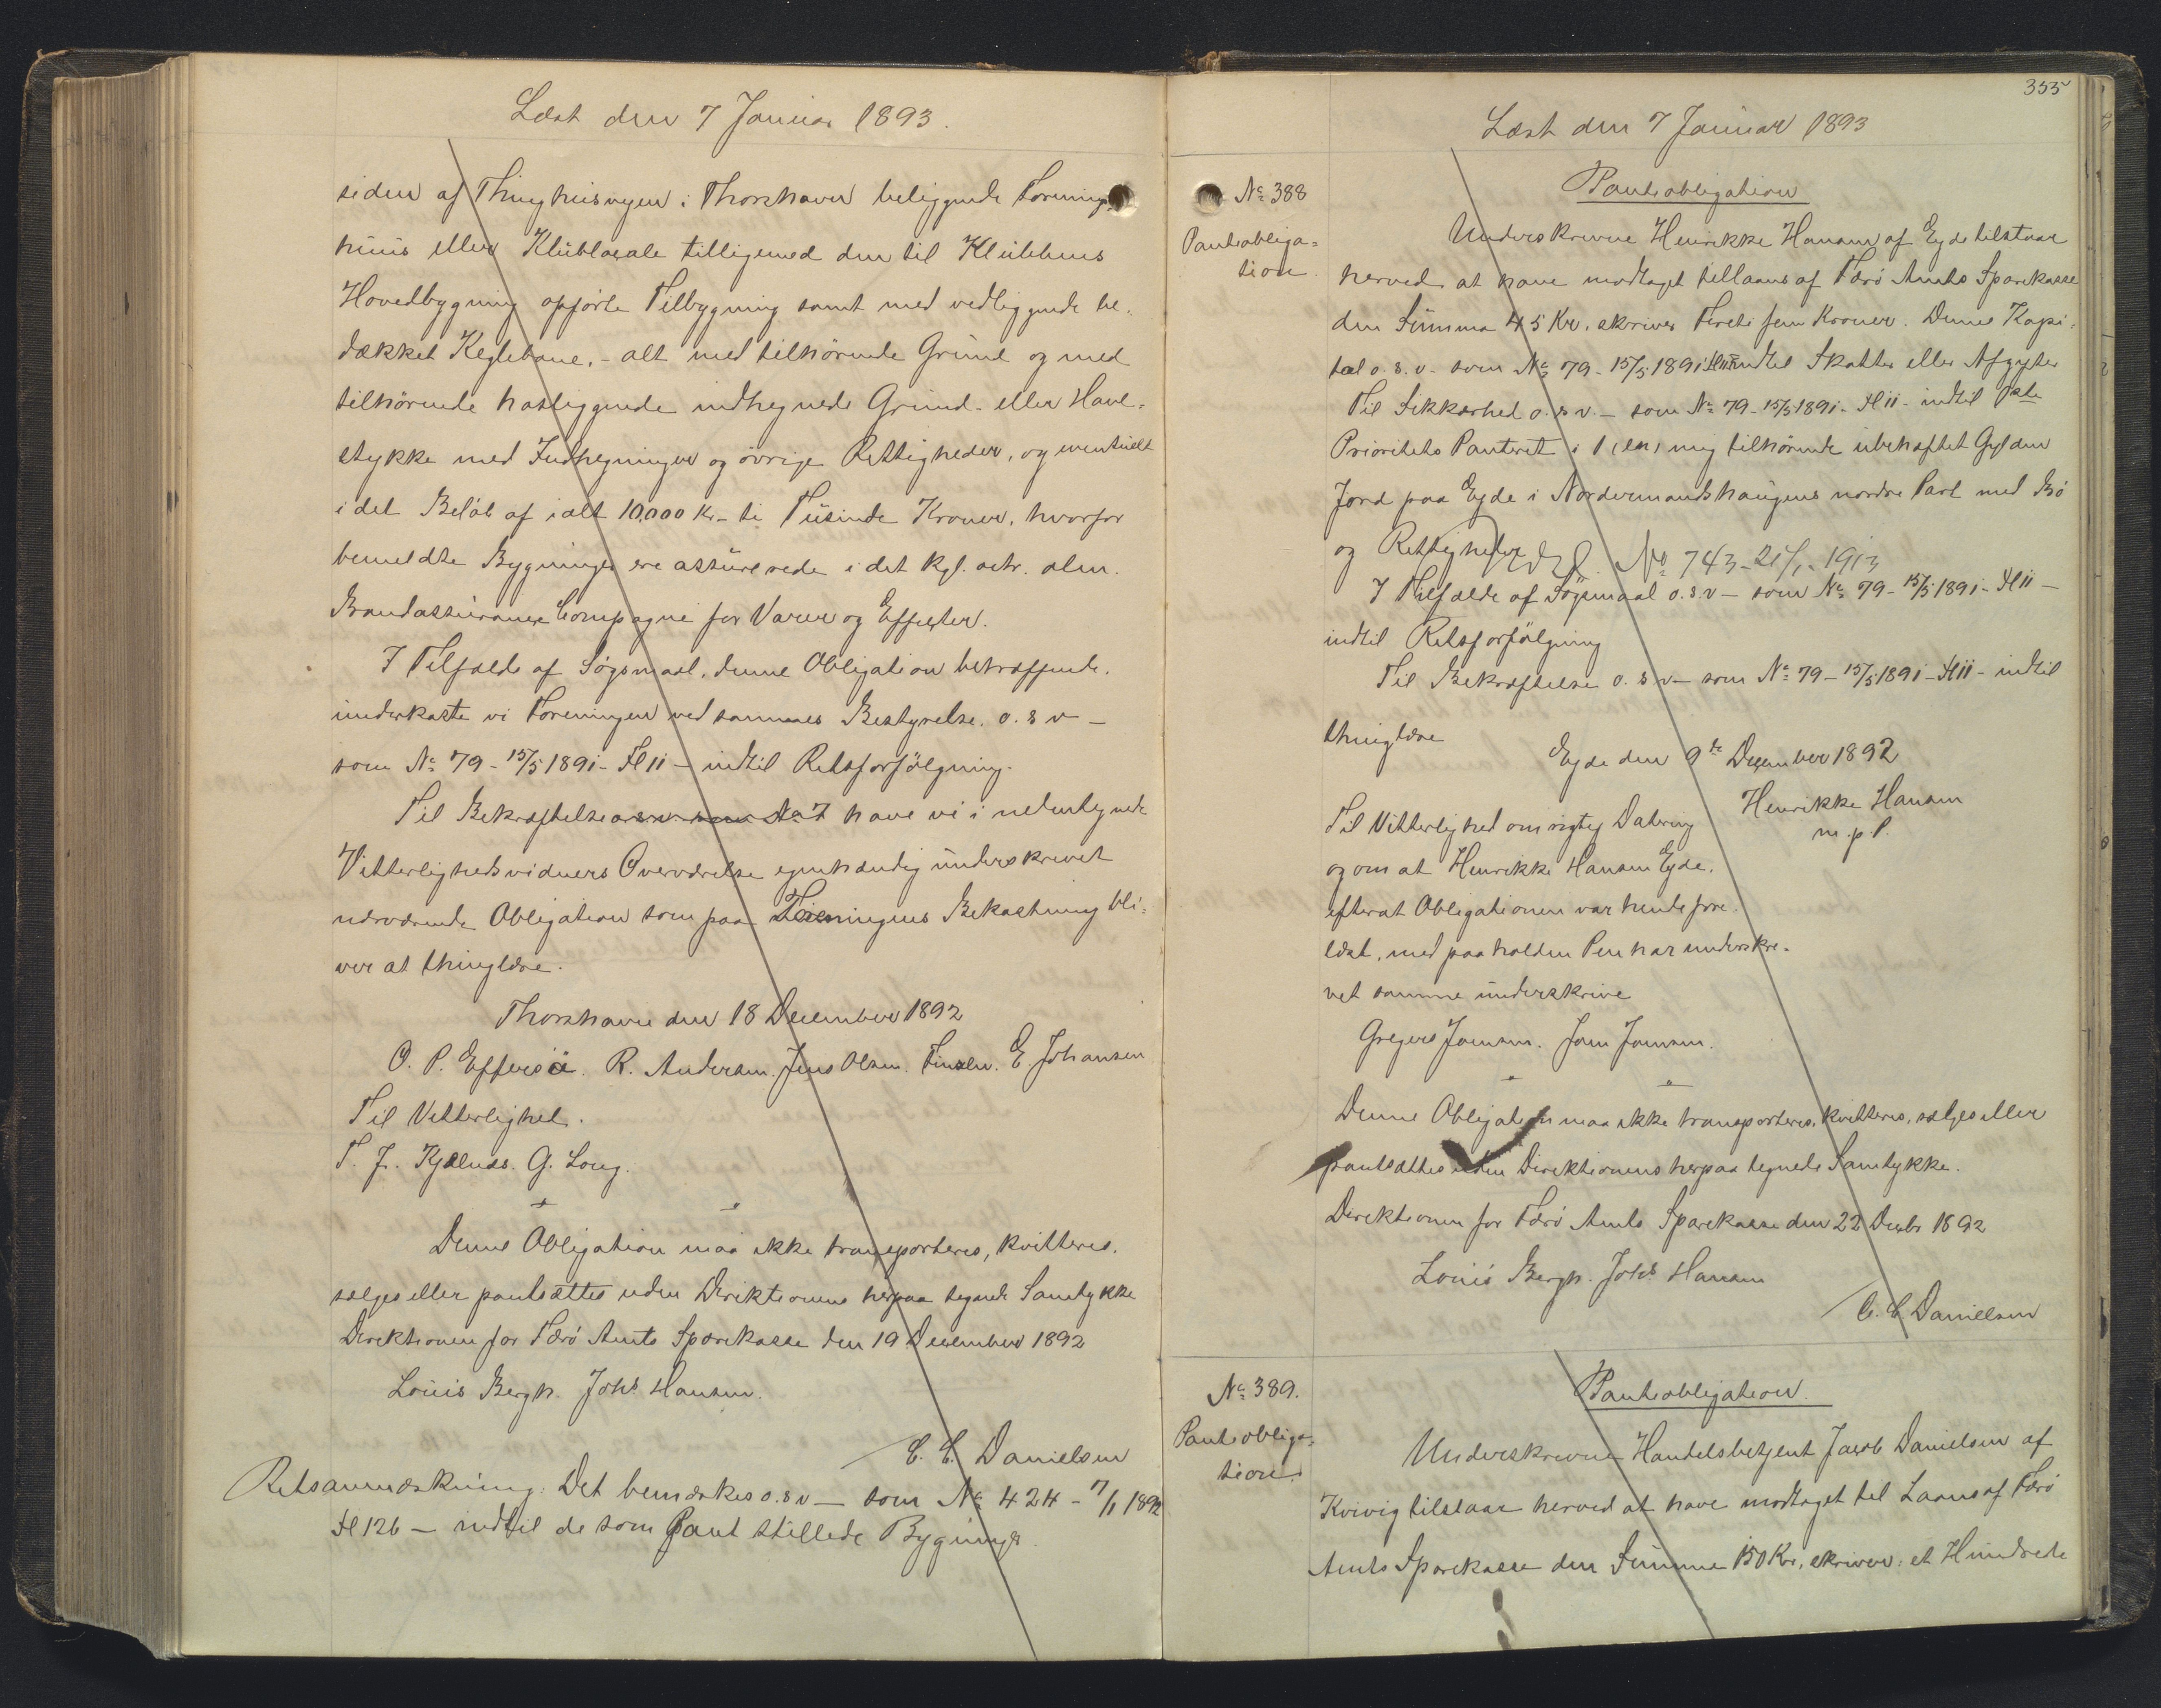 Læst den 7 Januar 1893.
siden af Thinghusvejen i Thorshavn beliggende Forenings
huus eller Klublocale tilligemed den til Klubbens
Hovedbygning opførte Tilbygning samt med vedliggende be-
dækket Keglebane, - alt med tilhørende Grund og med
tilhørende hosliggende indhegnede Grund- eller Have-
stykke med Indhegninger og øvrige Rettigheder, og eventuelt
i det Beløb af ialt 10,000 Kr - ti Tusinde Kroner, hvorfor
bemeldte Bygninger ere assurerede i det kgl. octr. alm.
Brandassurance Compagni for Varer og Effecter.
I Tilfælde af Søgsmaal, denne Obligation betræffende,
underkaste vi Foreningen ved sammes Bestyrelse. o.s v -
som No 79 - 15/5 1891 - H 11 - indtil Retsforfølgning.
Til Bekræftelse o s v. som No 7 have vi i nedentegnede
Vitterlighedsvidners Overværelse egenhændig underskrevet
nærværende Obligation som paa Foreningens Bekostning bli-
ver at thinglæse.
Thorshavn den 18 December 1892
O. P. Effersöe. R. Andersen. Jens Olsen. Finsen. E Johansen
Til Vitterlighed.
T. J. Kjølnæs. G. Long.
Denne Obligation maa ikke transporteres, kvitteres,
sælges eller pantsættes uden Direktionens herpaa tegnede Samtykke
Direktionen for Færø Amts Sparekasse den 19 December 1892
Louis Bergh. Johs Hansen.
C. C. Danielsen
Retsanmærkning: Det bemærkes o.s v - som No 424 - 7/1 1892
H 126 - indtil de som Pant stillede Bygninger.
355
Læst den 7 Januar 1893
No 388
Panteobliga-
tion.
Panteobligation
Underskrevne Henrikke Hansen af Eyde tilstaar
herved at have modtaget tillaans af Færø Amts Sparekasse
den Summa 45 Kr. skriver Fireti fem Kroner. Denne Kapi-
tal o. s. v. som No 79 - 15/5 1891 H 11 indtil Skatter eller Afgifter
Til Sikkerhed o. s v. - som No 79 - 15/5 1891 - H 11 - indtil 1ste
Prioritets Panteret i 1 (en) mig tilhørende ubehæftet Gylden
Jord paa Eyde i Nordermandshaugens nordre Part med Bö
og Rettigheder No 743 - 21/1 - 1913
I Tilfælde af Søgsmaal o.s.v - som No 79 - 15/5 1891 - H 11 -
indtil Retsforfølgning
Til Bekræftelse o. s v - som No 79 - 15/5 1891 - H 11 - indtil
thinglæse
Eyde den 9de December 1892
Henrikke Hansen
m. p. P.
Til Vitterlighed om rigtig Datering
og om at Henrikke Hansen Eyde,
efterat Obligationen var hende fore-
læst, med paaholden Pen har underskre-
vet samme underskrive
Gregers Joensen. Joen Joensen.
Denne Obligation maa ikke transporteres, kvitteres, sælges eller
pantsættes uden Direktionens herpaa tegnede Samtykke.
Direktionen for Færø Amts Sparekasse den 22 Decbr 1892
Louis Bergh. Johs Hansen
C. C. Danielsen
No 389.
Panteobliga-
tion
Panteobligation.
Underskrevne Handelsbetjent Jacob Danielsen af
Kvivig tilstaar herved at have modtaget til Laans af Færø
Amts Sparekasse den Summa 150 Kr. skriver: et Hundrede